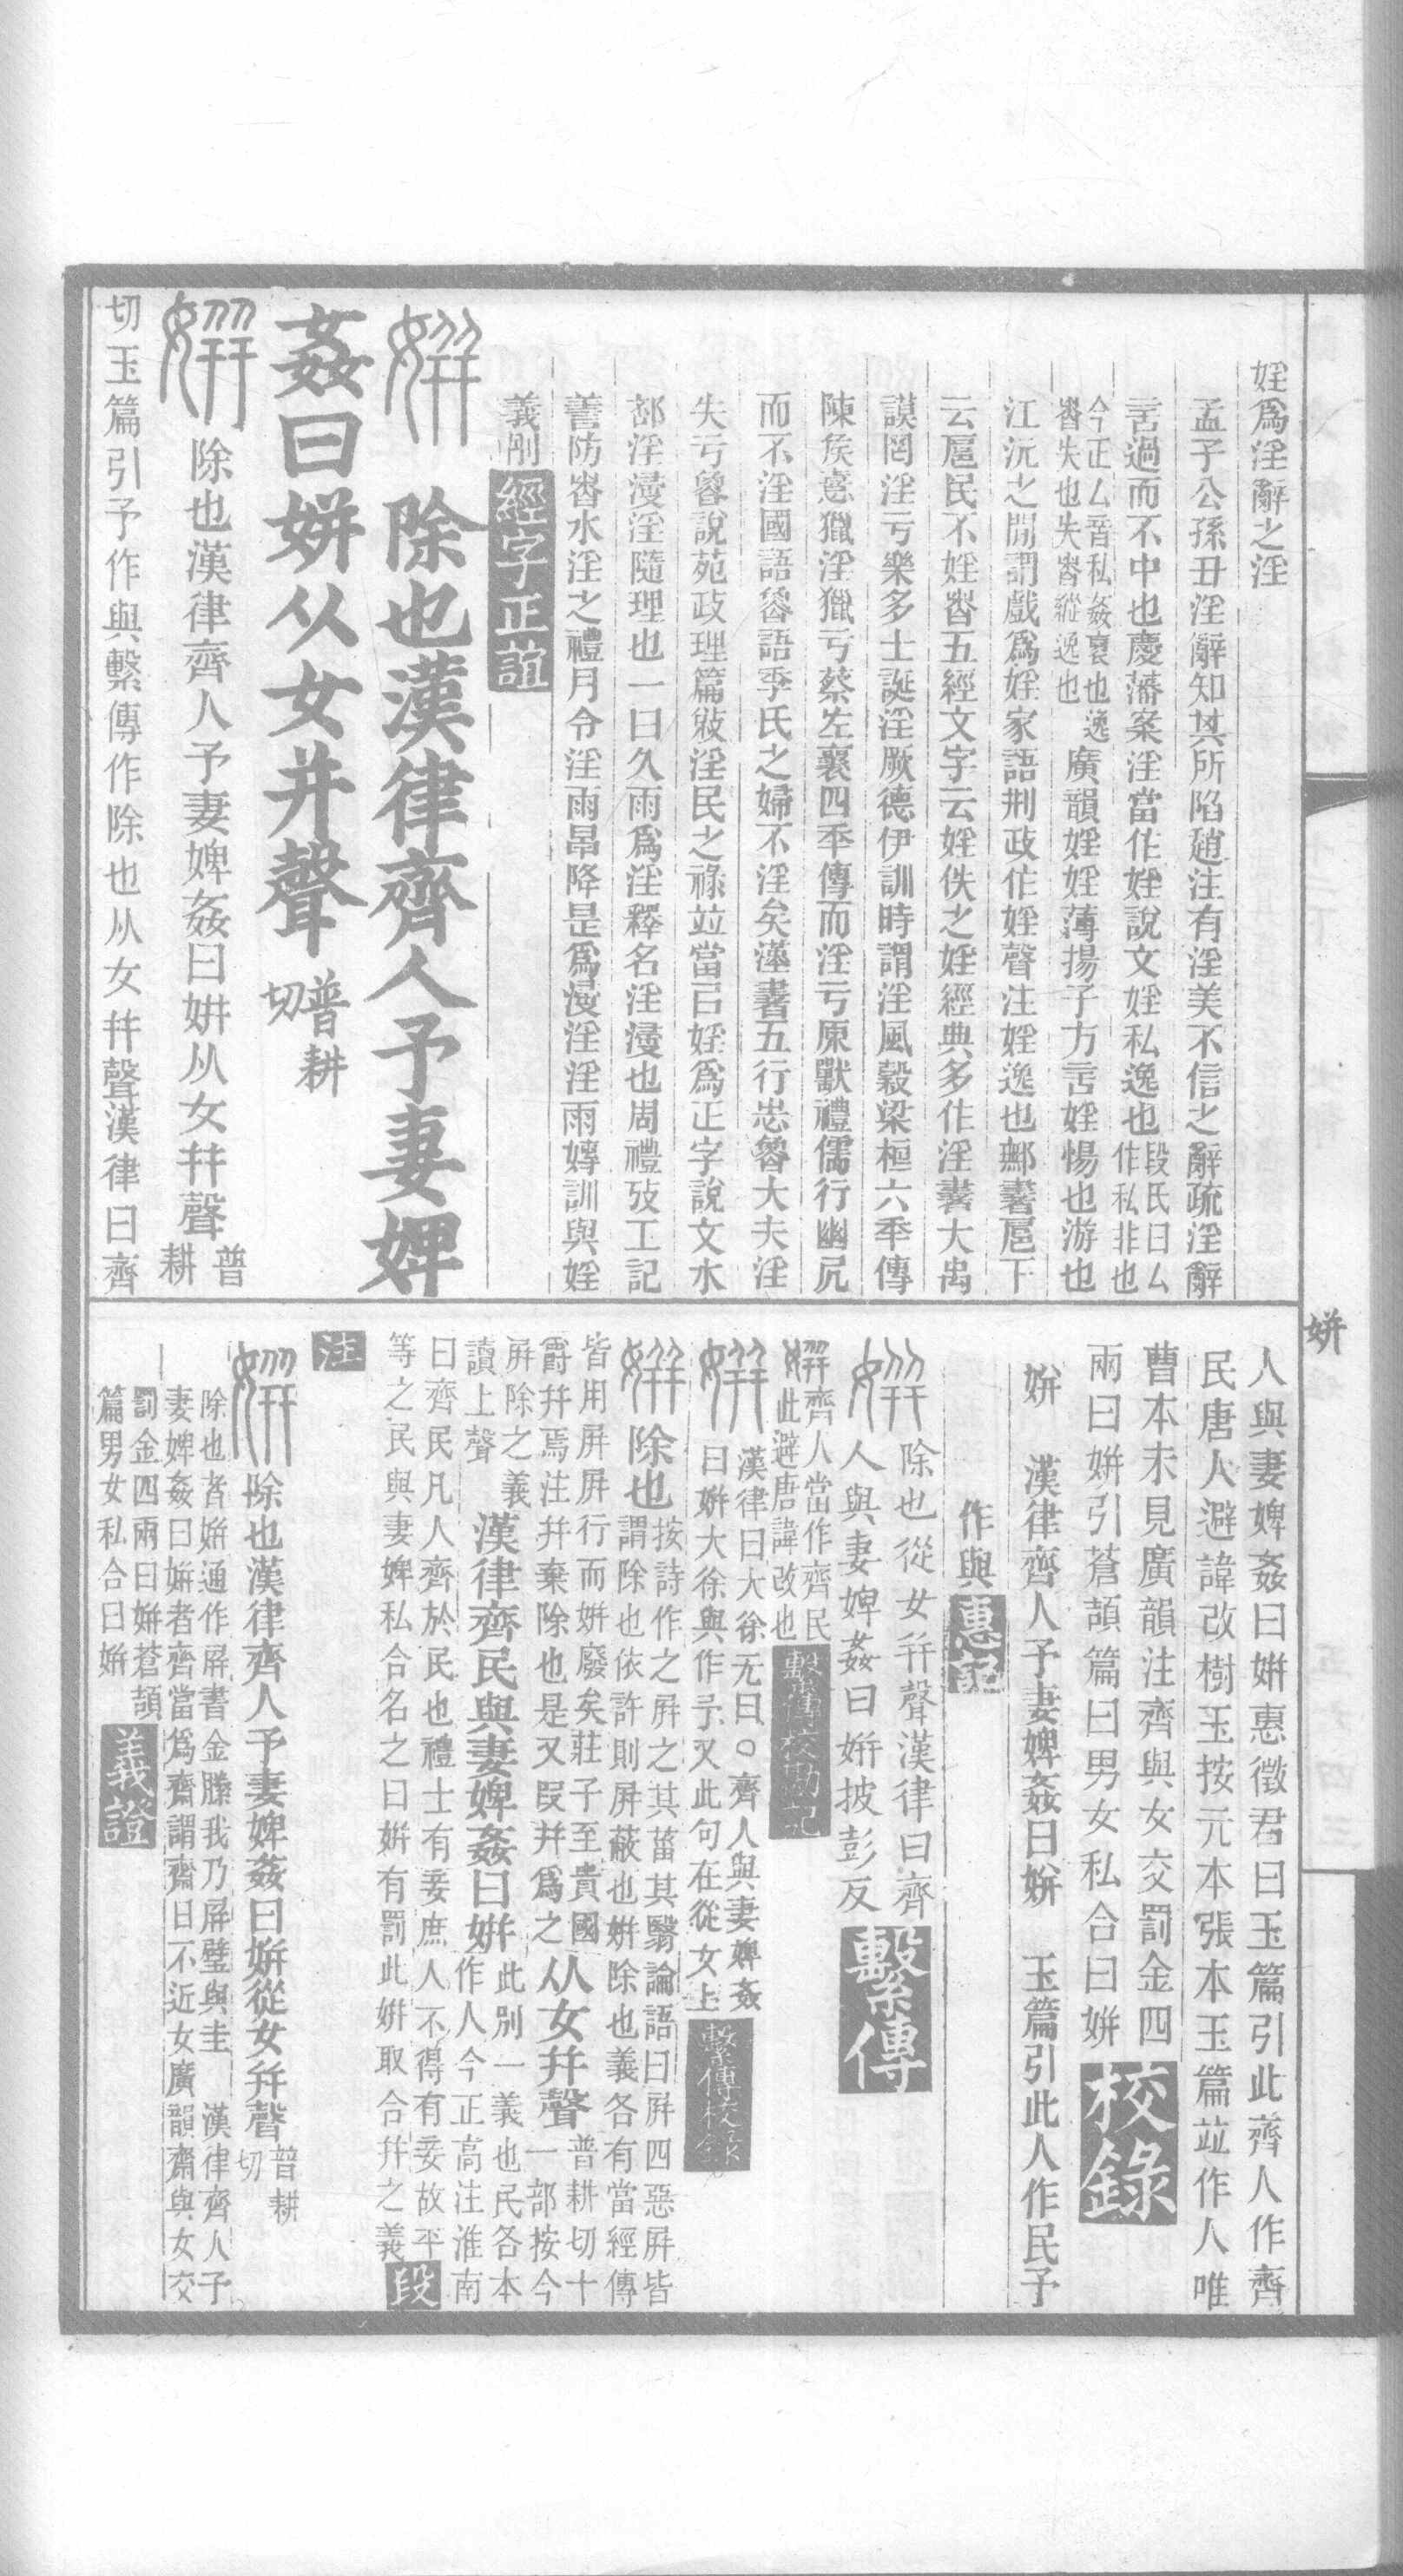 婬爲淫辭之淫
孟子公孫丑淫辭知其所陷趙注有淫美不信之辭疏淫辭
言過而不中也慶藩案淫當作婬說文婬私逸也段氏曰厶作私非也
今正厶音私姦衺也逸者失也失者縱逸也廣韻婬婬薄揚子方言婬惕也游也
江沅之閒謂戲爲婬家語刑政作婬聲注婬逸也鄴書扈下
云扈民不婬者五經文字云婬佚之婬經典多作淫書大禹
謨罔淫亏樂多士誕淫厥德伊訓時謂淫風穀梁桓六年傳
陳矦憙獵淫獵亏蔡左襄四年傳而淫亏原獸禮儒行幽凥
而不淫國語魯語季氏之婦不淫矣漢書五行志魯大夫淫
失亏魯說苑政理篇敓淫民之祿竝當㠯婬爲正字說文水
部淫浸淫隨理也一曰久雨爲淫釋名淫浸也周禮攷工記
善防者水淫之禮月令淫雨蚤降是爲浸淫淫雨婷訓與婬
義別經字正誼
姘 除也漢律齊人予妻婢
姦曰姘从女并聲普耕切
姘 除也漢律齊人予妻婢姦曰姘从女幷聲普耕
切玉篇引予作與繫傳作除也从女幷聲漢律曰齊
姘
人與妻婢姦曰姘惠徵君曰玉篇引此齊人作齊
民唐人避諱改樹玉按元本張本玉篇竝作人唯
曹本未見廣韻注齊與女交罰金四
兩曰姘引蒼頡篇曰男女私合曰姘校錄
姘 漢律齊人予妻婢姦曰姘 玉篇引此人作民予
作與惠記
姘 除也從女幷聲漢律曰齊
人與妻婢姦曰姘披彭反繫傳
姘齊人當作齊民
此避唐諱改也繫傳校勘記
姘 漢律曰大徐无曰○齊人與妻婢姦
曰姘大徐與作予又此句在從女上繫傳校錄
姘 除也按詩作之屛之其菑其翳論語曰屛四惡屛皆
謂除也依許則屛蔽也姘除也義各有當經傳
皆用屛屛行而姘廢矣莊子至貴國
爵幷焉注幷棄除也是又叚幷爲之从女幷聲普耕切十
一部按今
屛除之義
讀上聲漢律齊民與妻婢姦曰姘此別一義也民各本
作人今正高注淮南
曰齊民凡人齊於民也禮士有妾庶人不得有妾故平
等之民與妻婢私合名之曰姘有罰此姘取合幷之義段
注
姘 除也漢律齊人予妻婢姦曰姘從女幷聲普耕切
除也者姘通作屛書金縢我乃屛璧與圭 漢律齊人予
妻婢姦曰姘者齊當爲齋謂齋日不近女廣韻齋與女交
罰金四兩曰姘蒼頡
篇男女私合曰姘義證